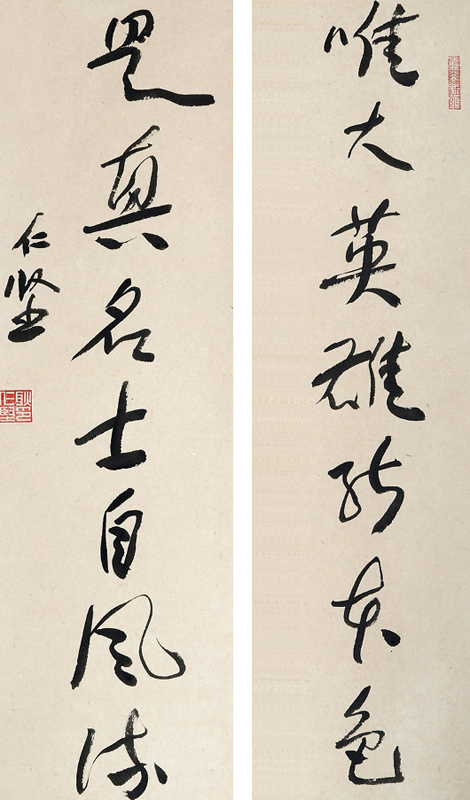 唯大英雄能本色
是真名士自風流
仁坚